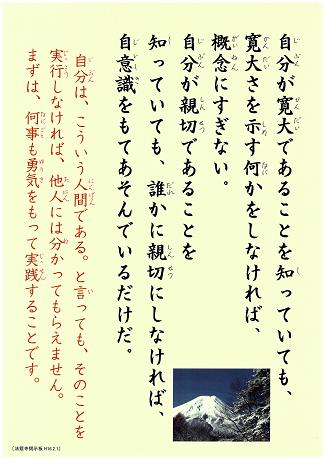 自分が寛大であることを知っていても、
寛大さを示す何かをしなければ、
概念にすぎない。
自分が親切であることを
知っていても、誰かに親切にしなければ、
自意識をもてあそんでいるだけだ。
自分は、こういう人間である。と言っても、そのことを
実行しなければ、他人には分かってもらえません。
まずは、何事も勇気をもって実践することです。